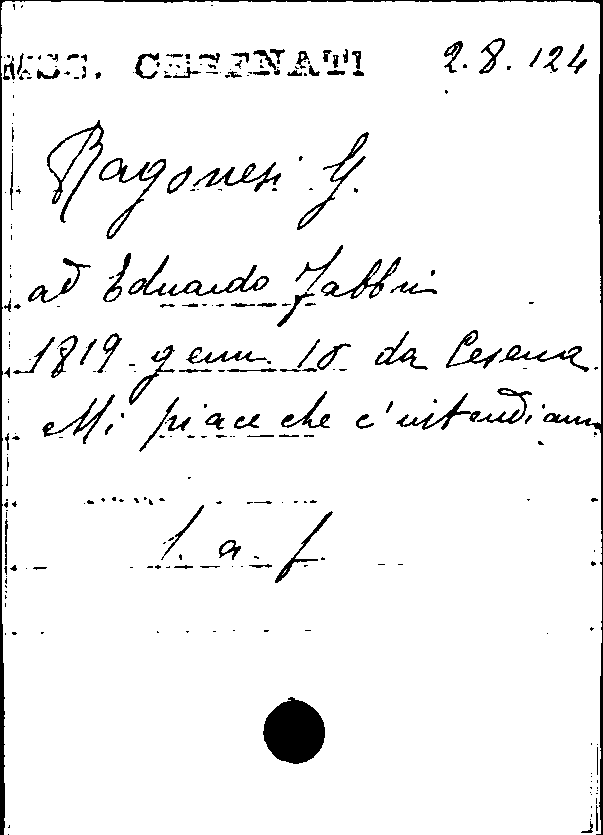 MSS. CESENATI 2.8.124
Ragonesi G.
ad Eduardo Fabbri
1819 genn. 18 da Cesena
Mi piace che c'intendiamo
l. a. f.